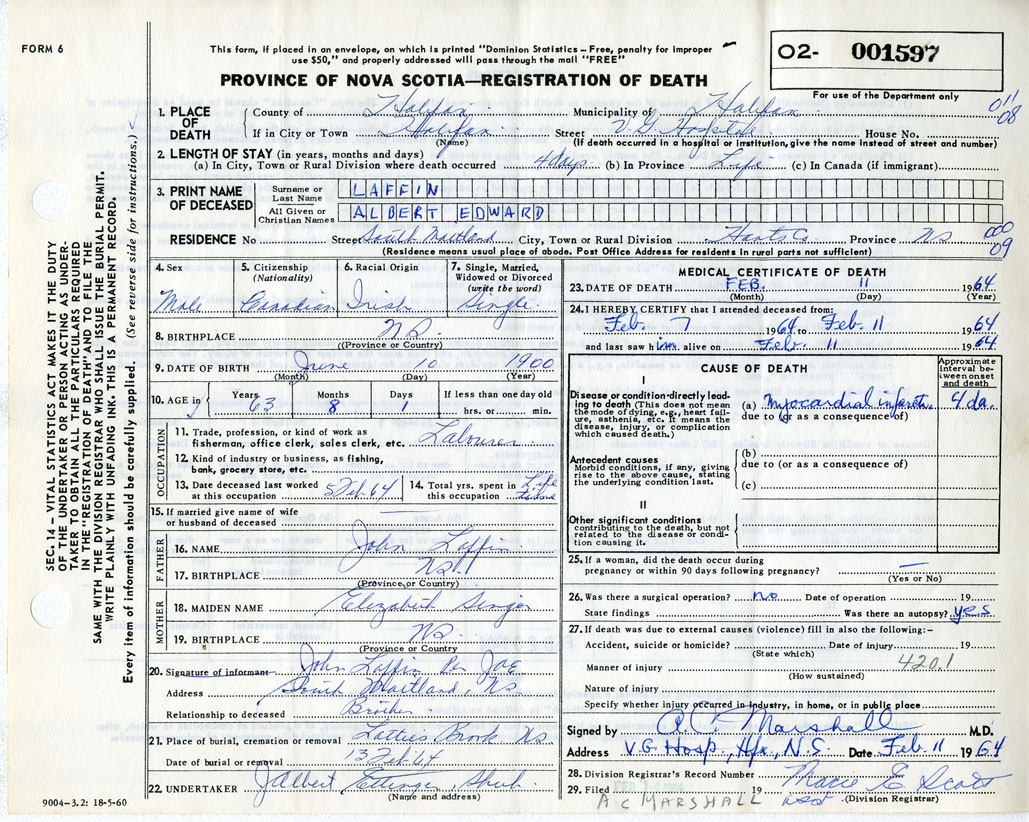 FORM 6
This form, if placed in an envelope, on which is printed "Dominion Statistics – Free, penalty for improper
use $50," and properly addressed will pass through the mail "FREE"
PROVINCE OF NOVA SCOTIA—REGISTRATION OF DEATH
O2- 001597
For use of the Department only
011
08
1. PLACE OF DEATH
County of Halifax Municipality of Halifax
If in City or Town Halifax Street V G Hospital House No.
(Name) (If death occurred in a hospital or institution, give the name instead of street and number)
2. LENGTH OF STAY (in years, months and days)
(a) In City, Town or Rural Division where death occurred 4 days (b) In Province Life (c) In Canada (if immigrant)
3. PRINT NAME OF DECEASED
Surname or Last Name LAFFIN
All Given or Christian Names ALBERT EDWARD
RESIDENCE No Street South Maitland City, Town or Rural Division Hants Co Province NS
000
09
(Residence means usual place of abode. Post Office Address for residents in rural parts not sufficient)
4. Sex
Male
5. Citizenship (Nationality)
Canadian
6. Racial Origin
Irish
7. Single, Married, Widowed or Divorced (write the word)
Single
8. BIRTHPLACE NS
((Province or Country)
9. DATE OF BIRTH June 10 1900
(Month) (Day) (Year)
10. AGE in
Years Months Days If less than one day old
63 8 1 hrs. or min.
OCCUPATION
11. Trade, profession, or kind of work as
fisherman, office clerk, sales clerk, etc. Labourer
12. Kind of industry or business, as fishing,
bank, grocery store, etc.
13. Date deceased last worked
at this occupation 5 Feb 64
14. Total yrs. spent in
this occupation Life time
15. If married give name of wife
or husband of deceased
FATHER
16. NAME John Laffin
17. BIRTHPLACE NS
(Province or Country)
MOTHER
18. MAIDEN NAME Elizabeth Singer
19. BIRTHPLACE NS
(Province or Country)
20. Signature of informant John Laffin Per JAE
Address South Maitland, NS
Relationship to deceased Brother
21. Place of burial, cremation or removal Latties Brook NS
Date of burial or removal 13 Feb 64
22. UNDERTAKER Jalbert Ettinger, Shub
(Name and address)
9004-3.2: 18-5-60
MEDICAL CERTIFICATE OF DEATH
23. DATE OF DEATH FEB. 11 1964
(Month) (Day) (Year)
24. I HEREBY CERTIFY that I attended deceased from:
Feb. 7 1964 to Feb. 11 1964
and last saw him alive on Feb. 11 1964
CAUSE OF DEATH
Approximate interval between onset and death
I
Disease or condition directly leading to death (This does not mean
the mode of dying, e.g., heart failure, asthenia, etc. It means the
disease, injury, or complication
which caused death.)
(a) Myocardial infarct. 4 da.
due to (or as a consequence of)
Antecedent causes
Morbid conditions, if any, giving
rise to the above cause, stating
the underlying condition last.
(b)
due to (or as a consequence of)
(c)
II
Other significant conditions
contributing to the death, but not
related to the disease or condition causing it.
25. If a woman, did the death occur during
pregnancy or within 90 days following pregnancy? —
(Yes or No)
26. Was there a surgical operation? no Date of operation 19
State findings Was there an autopsy? yes
27. If death was due to external causes (violence) fill in also the following:–
Accident, suicide or homicide? Date of injury 19
(State which)
Manner of injury 420.1
(How sustained)
Nature of injury
Specify whether injury occurred in industry, in home, or in public place
Signed by A.C. Marshall M.D.
Address V.G. Hosp, Hfx, N.S. Date Feb 11 1964
28. Division Registrar's Record Number
29. Filed 19 Marie E Scott
(Division Registrar)
A.C MARSHALL
SEC. 14 – VITAL STATISTICS ACT MAKES IT THE DUTY
OF THE UNDERTAKER OR PERSON ACTING AS UNDER-
TAKER TO OBTAIN ALL THE PARTICULARS REQUIRED
IN THE "REGISTRATION OF DEATH" AND TO FILE THE
SAME WITH THE DIVISION REGISTRAR WHO SHALL ISSUE THE BURIAL PERMIT.
WRITE PLAINLY WITH UNFADING INK. THIS IS A PERMANENT RECORD.
Every item of information should be carefully supplied. (See reverse side for instructions.)